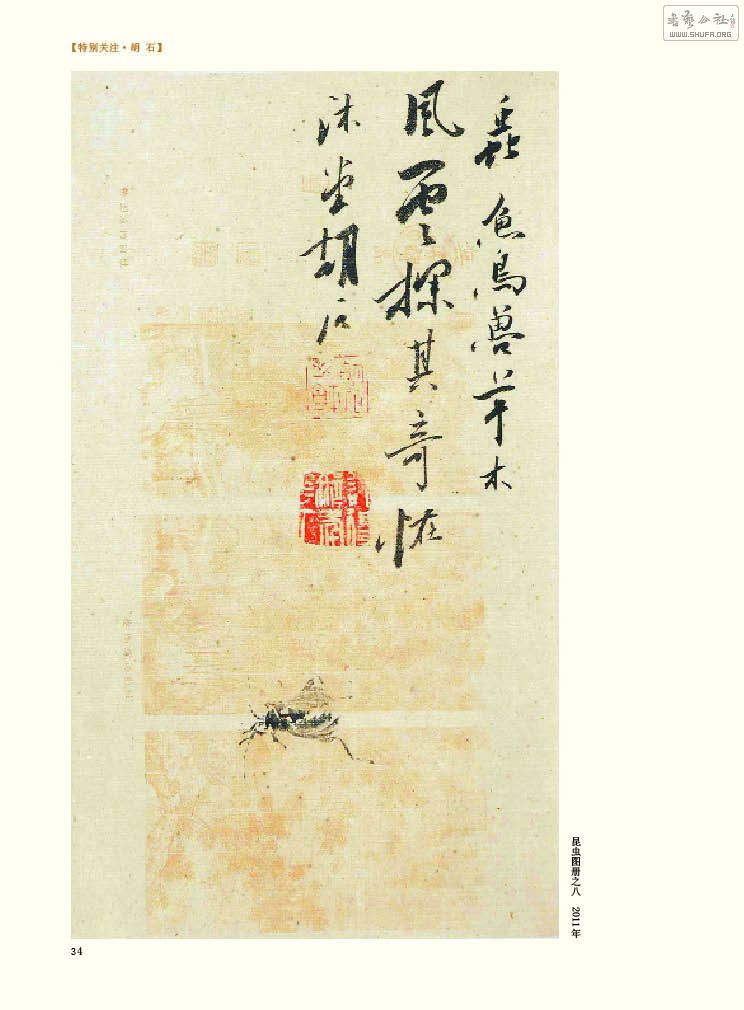 書藝公社
WWW.SHUFA.ORG
【特别关注·胡 石】
蟲魚鳥獸草木
風雲探其奇恠
沐堂胡石
昆虫图册之八 2011年
34